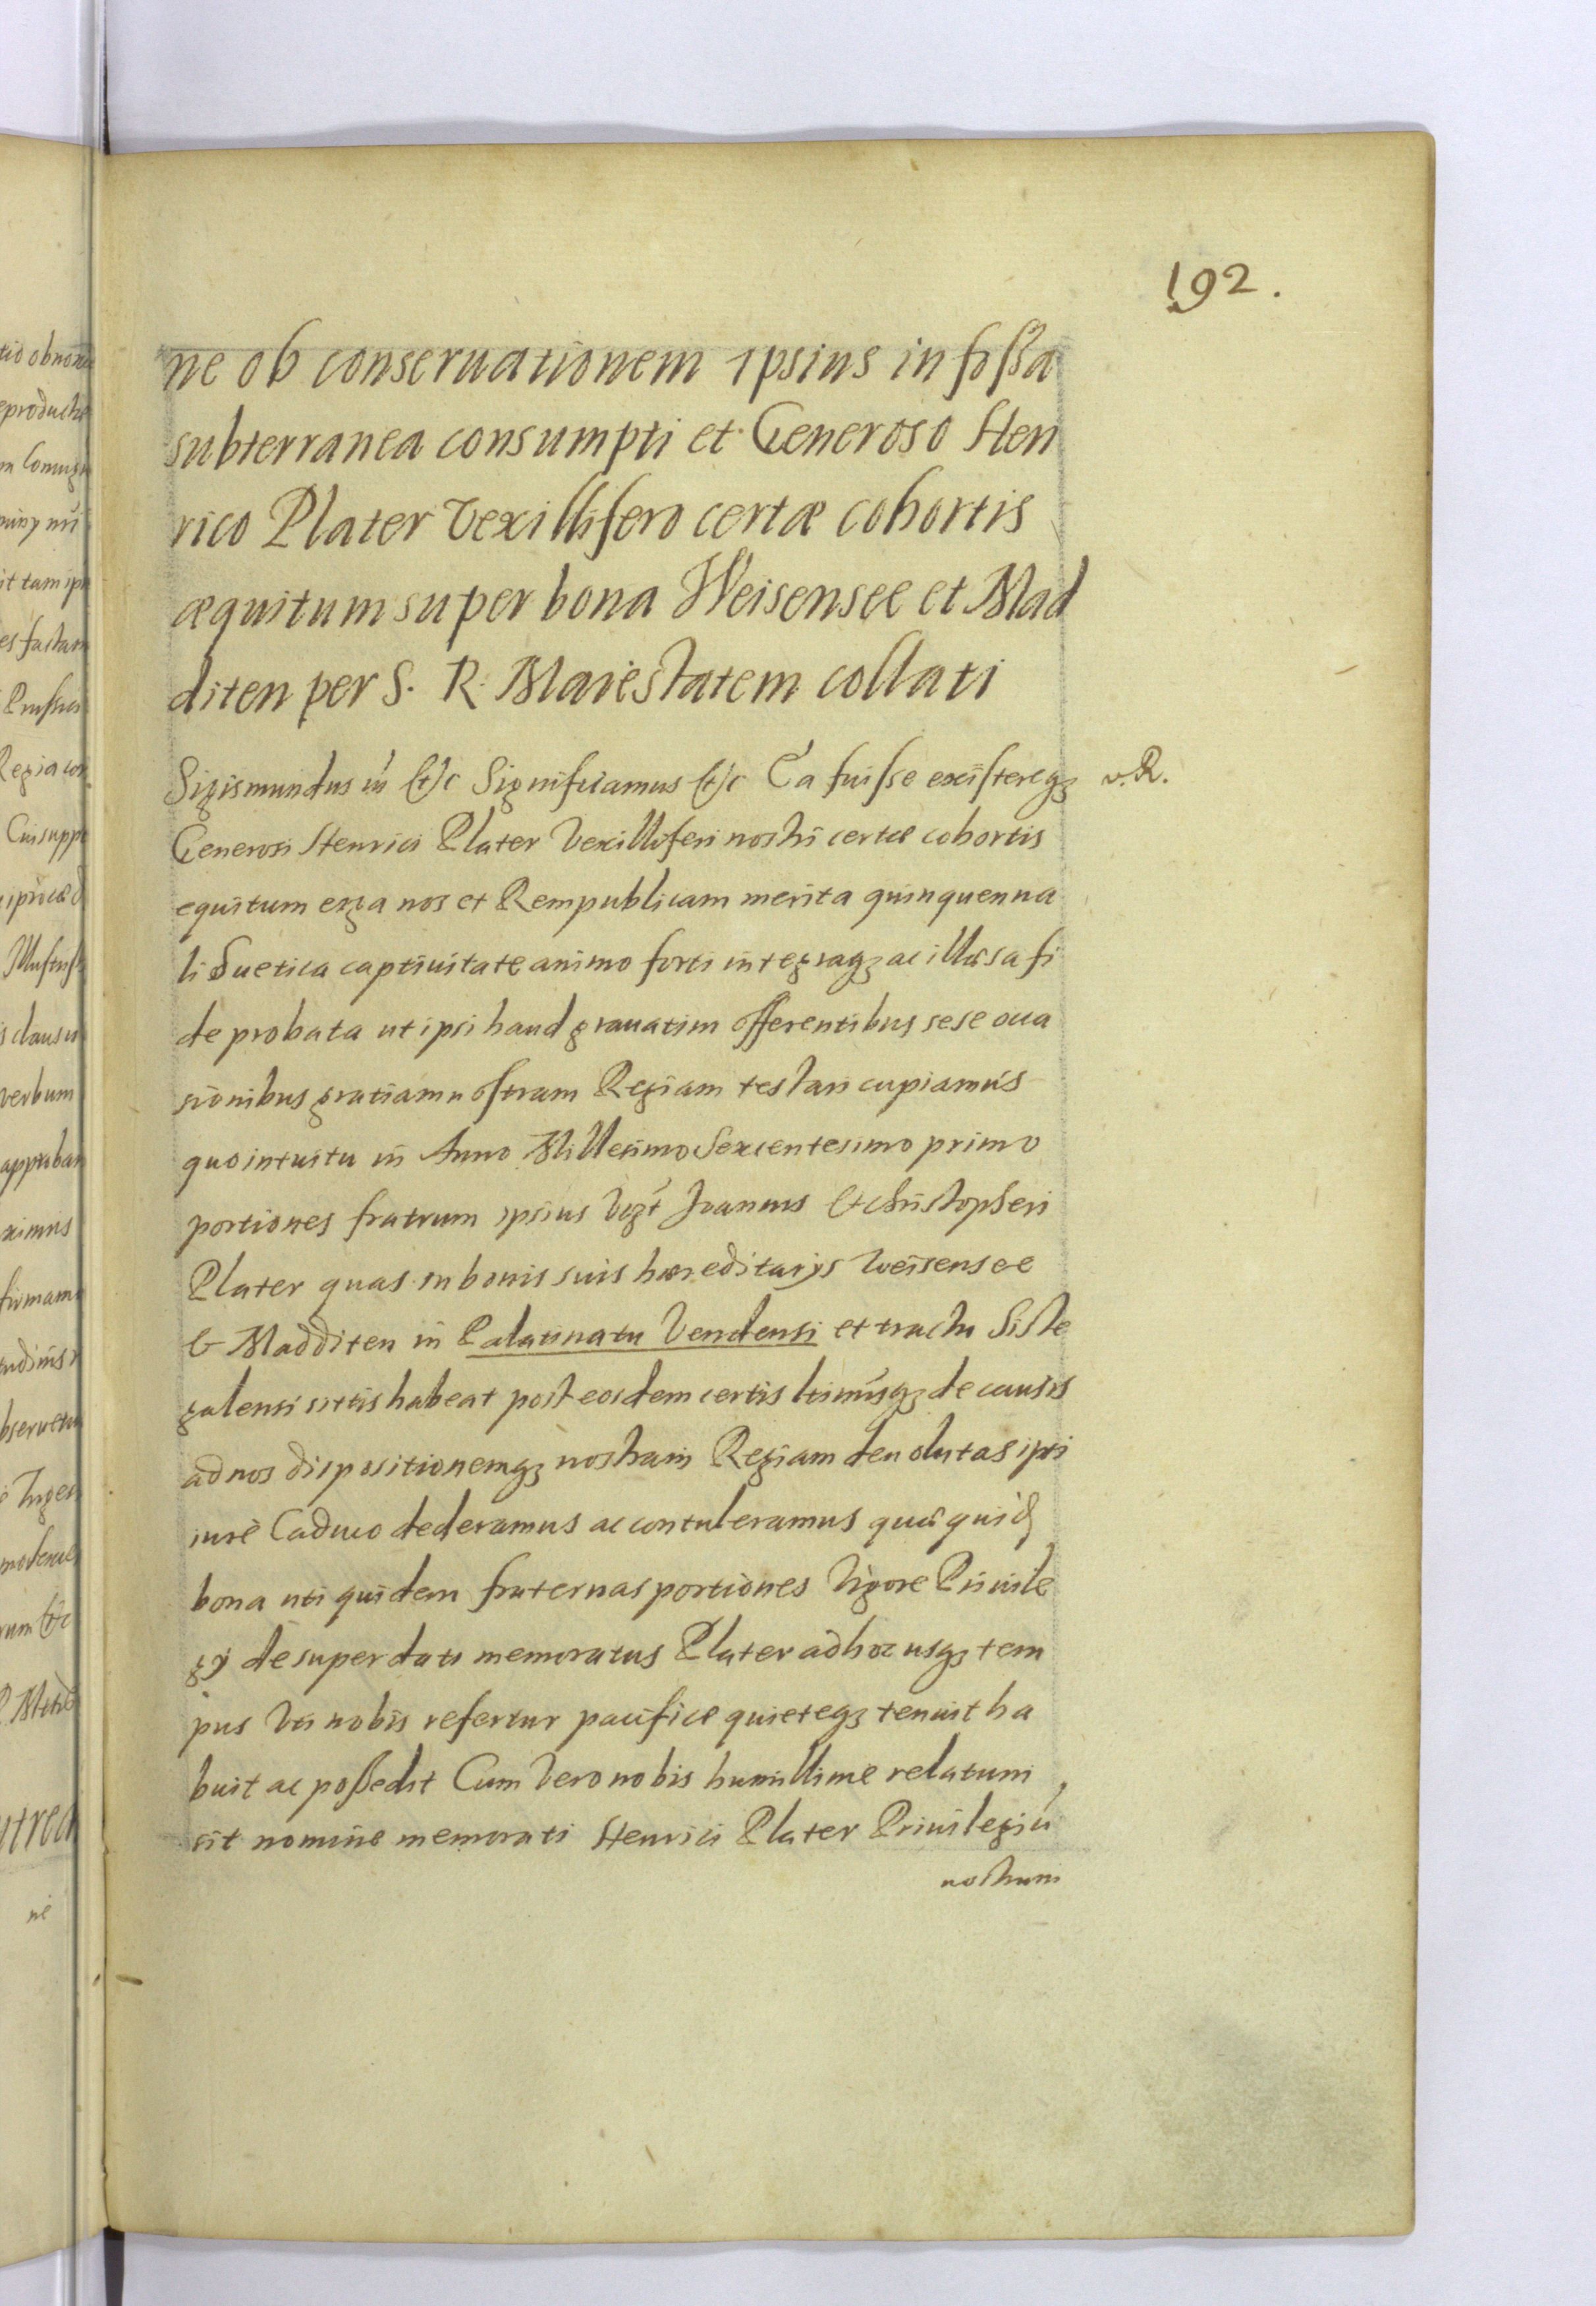 192.
ne ob conseruationem ipsius in foßa
subterranea consumpti et Generoso Hen
rico Plater Vexillifero certæ cohortis
æquitum super bona Weisensee et Mad
diten per S. R. Maiestatem collati
Sigismundus in &c Significamus &c Ea fuisse existereqȝ v. R.
Generosi Henrici Plater Vexilliferi nostri certæ cohortis
equitum erga nos et Rempublicam merita quinquenna
li Suetica captiuitate animo forti integraqȝ ac illæsa fi
de probata ut ipsi haud grauatim offerentibus sese occa
sionibus gratiam nostram Regiam testari cupiamus
quo intuitu in Anno Millesimo Sexcentesimo primo
portiones fratrum ipsius Vẓt Joannis & Christopheri
Plater quas in bonis suis hæreditarÿs Weisensee
& Madditen in Palatinatu Vendensi et tractu Siste
galensi sittis habeat post eosdem certis ltimisqȝ de causis
ad nos dispositionemqȝ nostram Regiam deuolutas ipsi
iure Caduco dederamus ac contuleramus quæ quid
bona uti quidem fraternas portiones Vigore Priuile
gÿ desuper dati memoratus Plater ad hoc usqȝ tem
pus Vti nobis refertur pacifice quieteqȝ tenuit ha
buit ac poßedit Cum Vero nobis humillime relatum
sit nomine memorati Henrici Plater Priuilegiū
nostrum